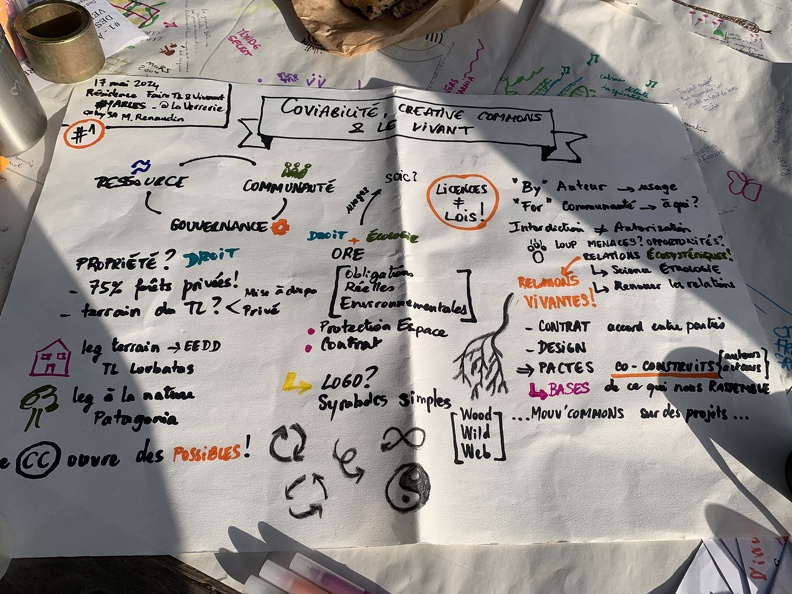 17 mai 2024
Résidence Faire TL & Vivant
#ARLES - @ La Verrerie
M. Renaudin
#1
COVIABILITÉ, CREATIVE COMMONS
& LE VIVANT
RESSOURCE
COMMUNAUTÉ
GOUVERNANCE
PROPRIÉTÉ? DROIT
- 75% forêts privées!
- terrain du TL? < Mise à dispo
Privé
leg terrain → EEDD
TL Lorbatas
leg à la nature
Patagonia
CC ouvre des POSSIBLES!
usages
soic?
DROIT + ÉCOLOGIE
ORE
[Obligations
Réelles
Environnementales]
• Protection Espace
• Contrat
LOGO?
Symboles simples
LICENCES
≠
LOIS!
"By" Auteur → usage
"For" Communauté → à qui?
Interdiction ≠ Autorisation
LOUP MENACES? OPPORTUNITÉS?
RELATIONS ÉCOSYSTÉMIQUES!
↳ Science ÉTHOLOGIE
↳ Renouer les relations
RELATIONS
VIVANTES!
- CONTRAT accord entre parties
- DESIGN
→ PACTES CO-CONSTRUITS [auteurs
acteurs]
↳ BASES de ce qui nous RASSEMBLE
[Wood
Wild
Web]
...MOUV'COMMONS sur des projets...
YONIDE
SECRET